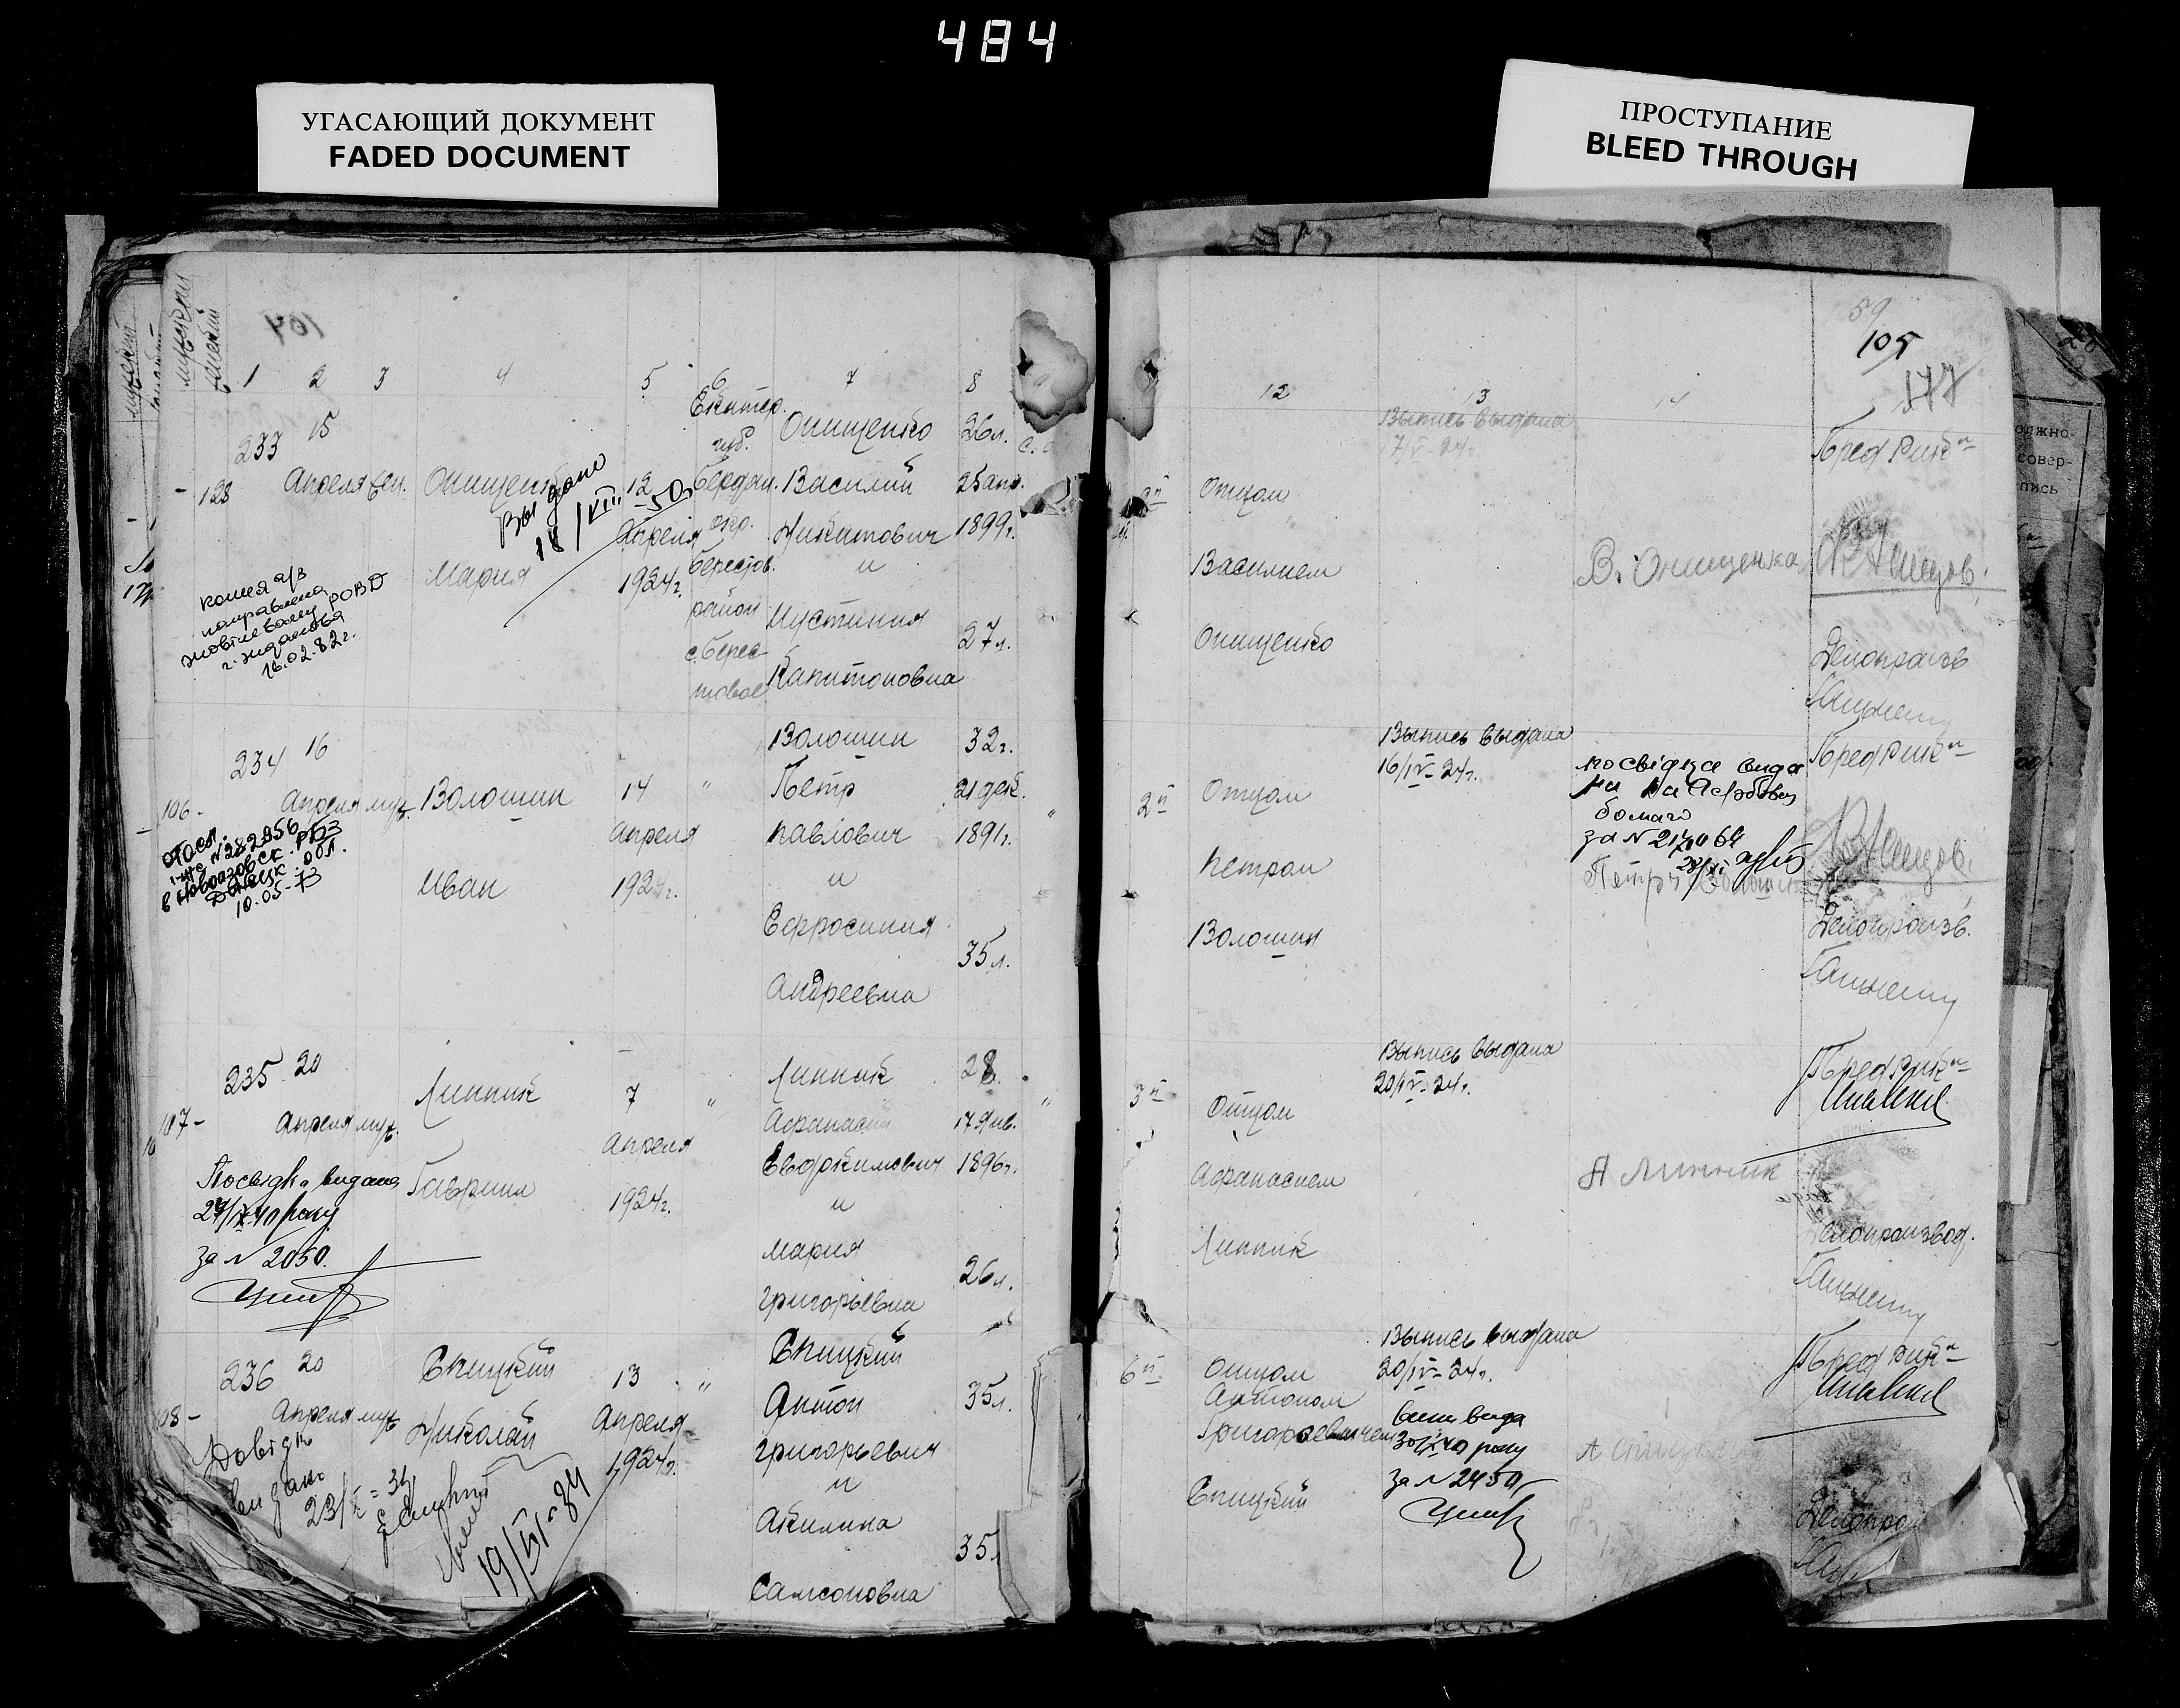 484
УГАСАЮЩИЙ ДОКУМЕНТ
FADED DOCUMENT
ПРОСТУПАНИЕ
BLEED THROUGH
мужский
женский
104
1 2 3 4 5 6 7 8
233 15
128 Апреля жен. Онищенко
Мария
12
Апреля
1924г.
Екатер.
губ.
бердян.
окр.
берестов.
район
с. берес-
товое
Онищенко
Василий
Никитович
и
Иустиния
Капитоновна
26л.
25 апр.
1899г.
27л.
Выдано
18/VII-50
копия а/з
направлена
жовтневому РОВД
г. Жданова
18.02.82г.
234 16
106 - Апреля муж. Волошин
Иван
14
Апреля
1924г.
"
Волошин
Петр
Павлович
и
Ефросиния
Андреевна
32г.
21 дек.
1891г.
35л.
"
№282956
в Новоазовск. РБЗ
Донецк. обл.
10.05-73
235 20
107 - Апреля муж.
Линник
Гавриил
7
Апреля
1924г.
"
Линник
Афанасий
Евдокимович
и
Мария
Григорьевна
28
17 янв.
1896г.
26л.
"
Посвідка видана
29/IX-40 року
за № 2050.
236 20
108 - Апреля муж.
Спицкий
Николай
13
Апреля
1924г.
"
Спицкий
Антон
Григорьевич
и
Акилина
Самсоновна
35л.
35л
Довідк
видано
23/X-34
19/VI-84
59
105
177
12 13 14
Выпись выдана
17/IV-24г.
Отцом
Василием
Онищенко
В. Онищенка
Пред Рик-а
Делопроизв
2й
Отцом
Петром
Волошин
Выпись выдана
16/IV-24г.
посвідка вида
на на
бомаго
за № 217064
Пред Рик-а
Делопроизв.
3й
Отцом
Афанасием
Линник
Выпись выдана
20/IV-24г.
А Линник
Пред Рик-а
Делопроизвод.
6й
Отцом
Антоном
Григорьевичем
Спицкий
Выпись выдана
20/IV-24г.
вида
30/X-40 року
за № 2450
Пред Рик-а
Делопро
олжно
совер-
пись